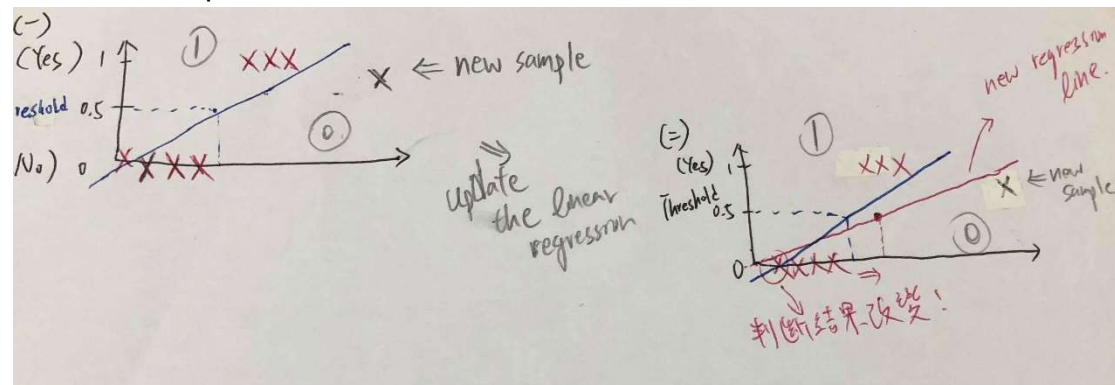 (一)
(Yes) 1
① XXX
X ⇐ new sample
reshold 0.5
⓪
No) 0
X X X X
⇒
update
the linear
regression
(二)
(Yes) 1
① XXX
new regression
line.
X ⇐ new
sample
Threshold
0.5
⓪
0
XXXX ⇒
判断结果改变!